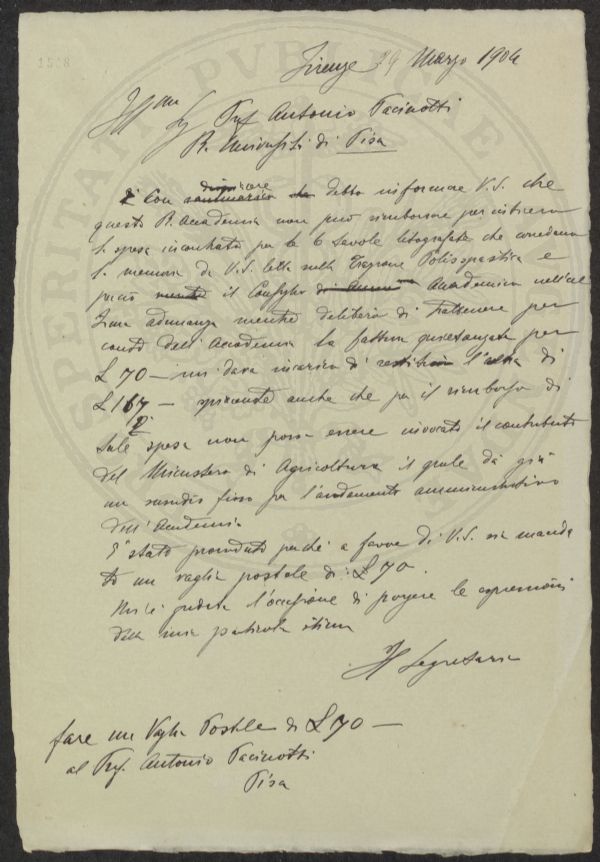 Firenze 29 Marzo 1904
Ill^mo Sig Prof Antonio Pacinotti
R. Università di Pisa
Con dispiacere debbo informare V.S. che
questa R. Accademia non può rimborsare per intiero
la spesa incontrata per le 6 tavole litografate che corredano
la memoria da V.S. letta sulla Trazione Polisopastica e
perciò mentre il Consiglio Accademico nell'ul
tima adunanza mentre deliberò di trattenere per
conto dell'Accademia la fattura quietanzata per
L 70 — mi dava incarico di l'altra di
L 167 — anche che per il rimborso di
tale spesa non possa essere invocato il contributo
del Ministero di Agricoltura il quale dà già
un sussidio fisso per l'andamento amministrativo
dell'Accademia
È stato provveduto perché a favore di V.S. sia manda
to un vaglia postale di L 70.
l'occasione di porgere le espressioni
della mia particolare stima
Il Segretario
fare un Vaglia Postale di L 70 —
al Prof. Antonio Pacinotti
Pisa
SPERITATI PVBLICAE